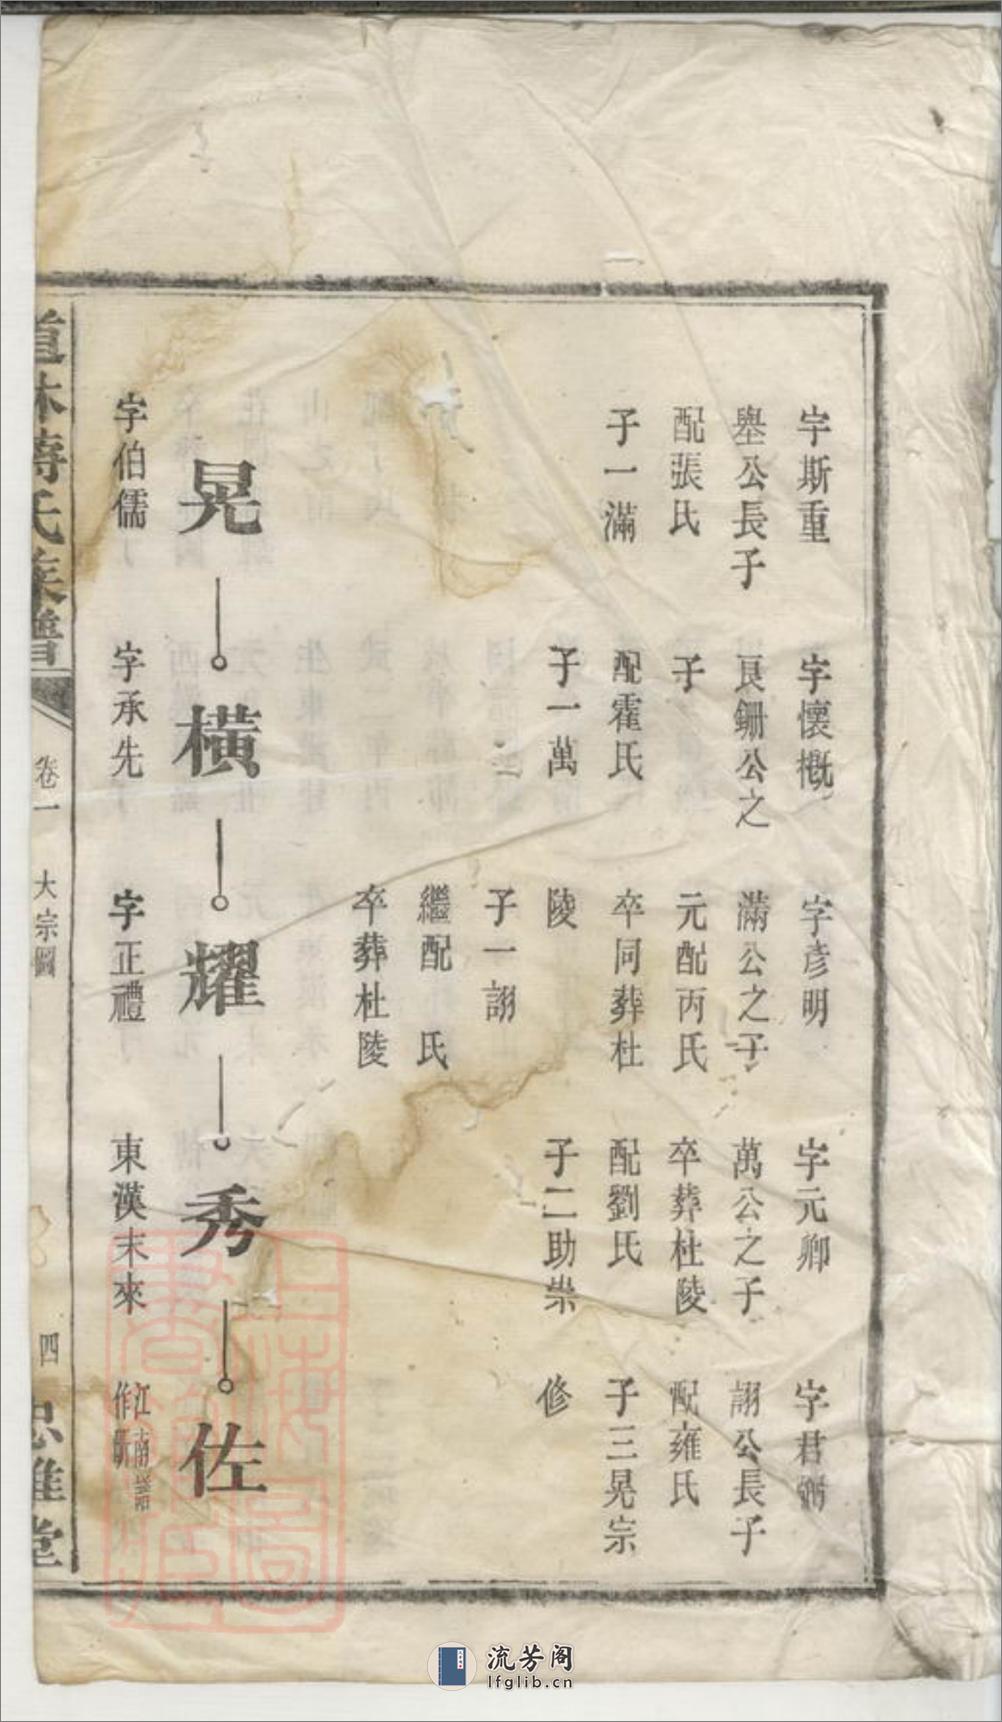 字斯重
舉公長子
配張氏
子一滿
字懷概
良鉶公之
子
配霍氏
子一萬
字彥明
滿公之子
元配丙氏
卒同葬杜
陵
子一詡
繼配　氏
卒葬杜陵
字元卿
萬公之子
卒葬杜陵
配劉氏
子二助崇
字君弼
詡公長子
配雍氏
子三晃宗
修
晃
橫
耀
秀
佐
字伯儒
字承先
字正禮
東漢末來
江
作
道林蔣氏族譜
卷一　大宗圖
四
忠雅堂
流芳阁
lfglib.cn